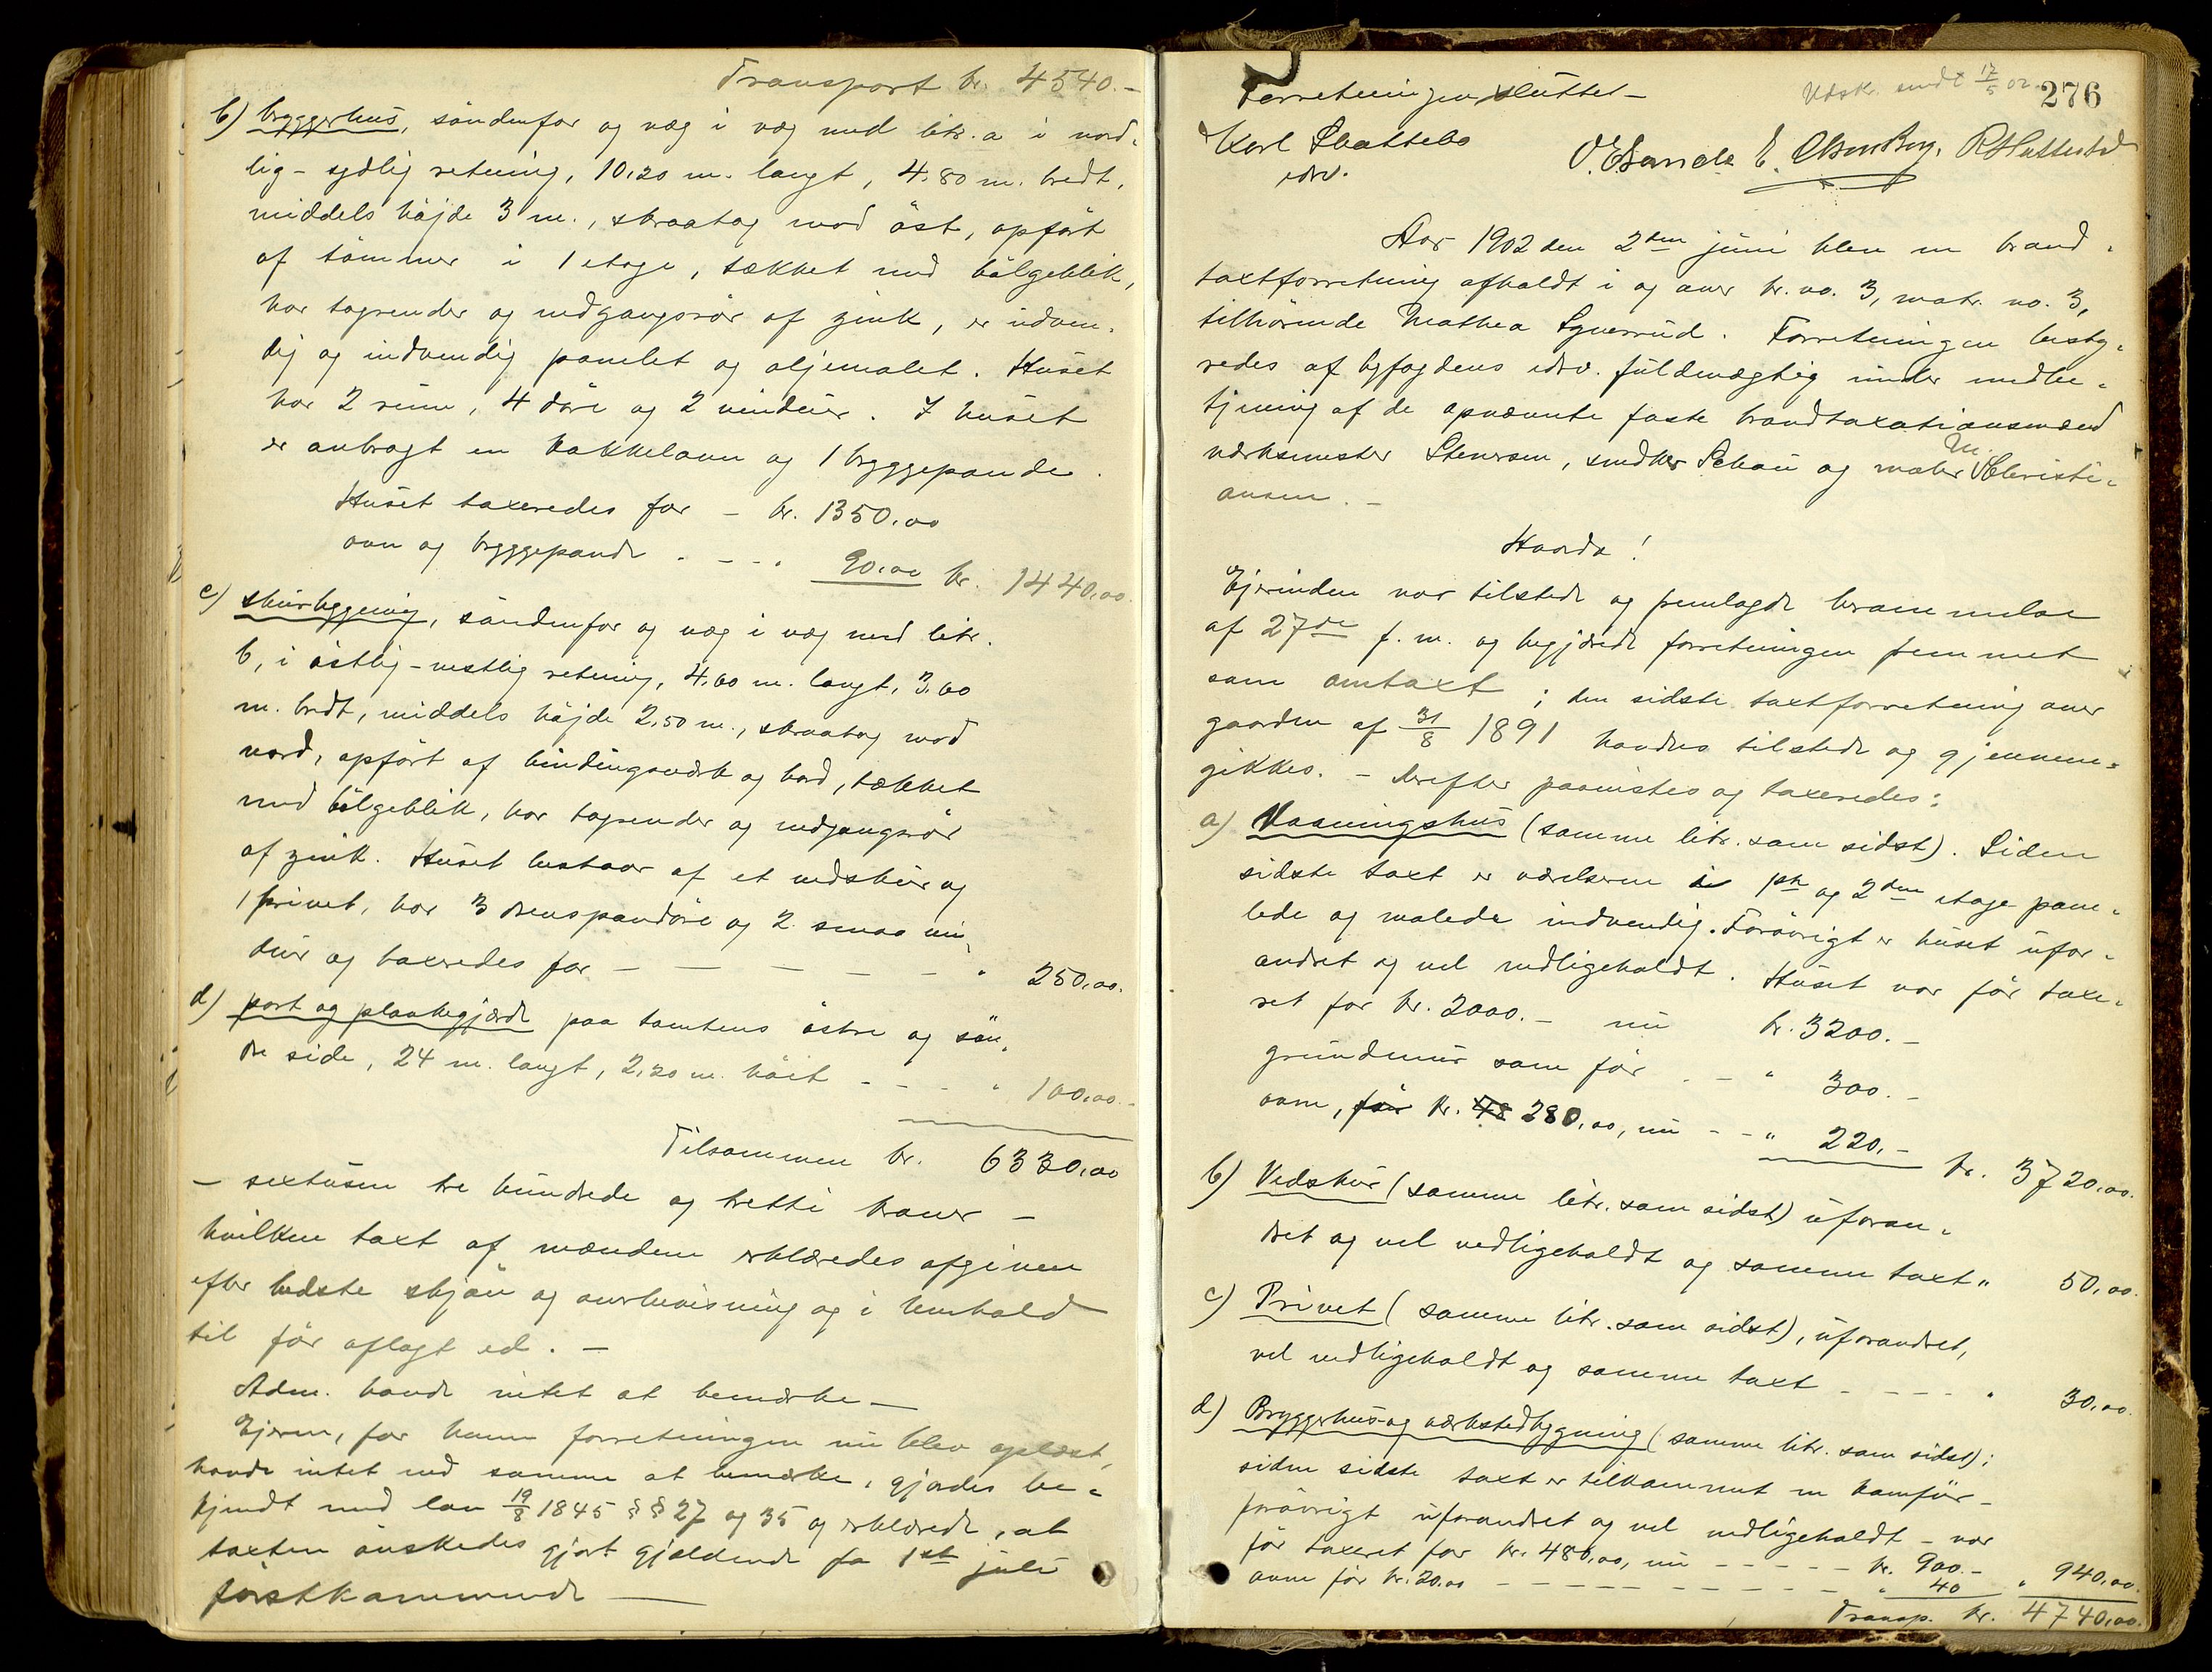 Transport kr. 4540.-
b) bryggerhus, söndenfor og væg i væg med litr. a i nord-
lig - sydlig retning, 10,20 m. langt, 4,80 m. bredt,
middels höjde 3 m., skraatag mod öst, opfört
af tömmer i 1 etage, tækket med bölgeblik,
har tagrender og nedgangsrör af zink, er udven-
dig og indvendig panelet og oljemalet. Huset
har 2 rum, 4 döre og 2 vinduer. I huset
er anbragt en kakkelovn og 1 bryggepande.
Huset taxeredes for - kr. 1350,00
ovn og bryggepande - - - " 90,00 kr. 1440,00.
c) skurbygning, söndenfor og væg i væg med litr.
b, i östlig - vestlig retning, 4,60 m. langt, 3,60
m. bredt, middels höjde 2,50 m., skraatag mod
nord, opfört af bindingsværk og bord, tækket
med bölgeblik, har tagrender og nedgangsrör
af zink. Huset bestaar af et vedskur og
1 privet, har 3 enspandöre og 2 smaa vin-
duer og taxeredes for - - - - - - " 250,00.
d) port og plankegjærde paa tomtens östre og sön-
dre side, 24 m. langt, 2,20 m. höit - - - " 100,00.-
Tilsammen kr. 6330,00
- sextusen tre hundrede og tretti kroner -
hvilken taxt af mændene erklæredes afgiven
efter bedste skjön og overbevisning og i henhold
til för aflagt ed. -
Adm. havde intet at bemærke -
Ejeren, for hvem forretningen nu blev oplæst,
havde intet ved samme at bemærke, gjordes be-
kjendt med lov 19/8 1845 §§ 27 og 35 og erklærede, at
taxten önskedes gjort gjældende fra 1ste juli
förstkommende -
276
Udskr. sendt 17/5 02
Forretningen sluttet -
Karl Skattebo
edsv.
E. Olsen Berg. R Hattestad
Aar 1902 den 2den juni blev en brand-
taxtforretning afholdt i og over br. no. 3, matr. no. 3,
tilhörende Mathea Syverrud. Forretningen besty-
redes af byfogdens edsv. fuldmægtig under medbe-
tjening af de opnævnte faste brandtaxationsmænd
værksmester Stenersen, snedker Schau og maler M. Christi-
ansen. -
Hvorda!
Ejerinden var tilstede og fremlagde berammelse
af 27de f. m. og begjærede forretningen fremmet
som omtaxt; den sidste taxtforretning over
gaarden af 31/8 1891 havdes tilstede og gjennem-
gikkes. - Derefter paavistes og taxeredes:
a) Vaaningshus (samme litr. som sidst). Siden
sidste taxt er værelserne i 1ste og 2den etage pane-
lede og malede indvendig. Forövrigt er huset ufor-
andret og vel vedligeholdt. Huset var för taxe-
ret for kr. 2000.- nu kr. 3200.-
grundmur som för - - " 300.-
ovne, för kr. 48 280,00, nu - - " 220,- kr. 3720,00.
b) Vedskur (samme litr. som sidst) uforan-
dret og vel vedligeholdt og samme taxt " 50,00.
c) Privet (samme litr. som sidst), uforandret,
vel vedligeholdt og samme taxt - - - - " 30,00.
d) Bryggerhus- og værkstedbygning (samme litr. som sidst);
siden sidste taxt er tilkommet en komfür -
forövrigt uforandret og vel vedligeholdt - var
för taxeret for kr. 480,00, nu - - - - - kr. 900.-
ovne för kr. 20.00 - - - - - - - - " 40 " 940,00.
Transp. kr. 4740,00.